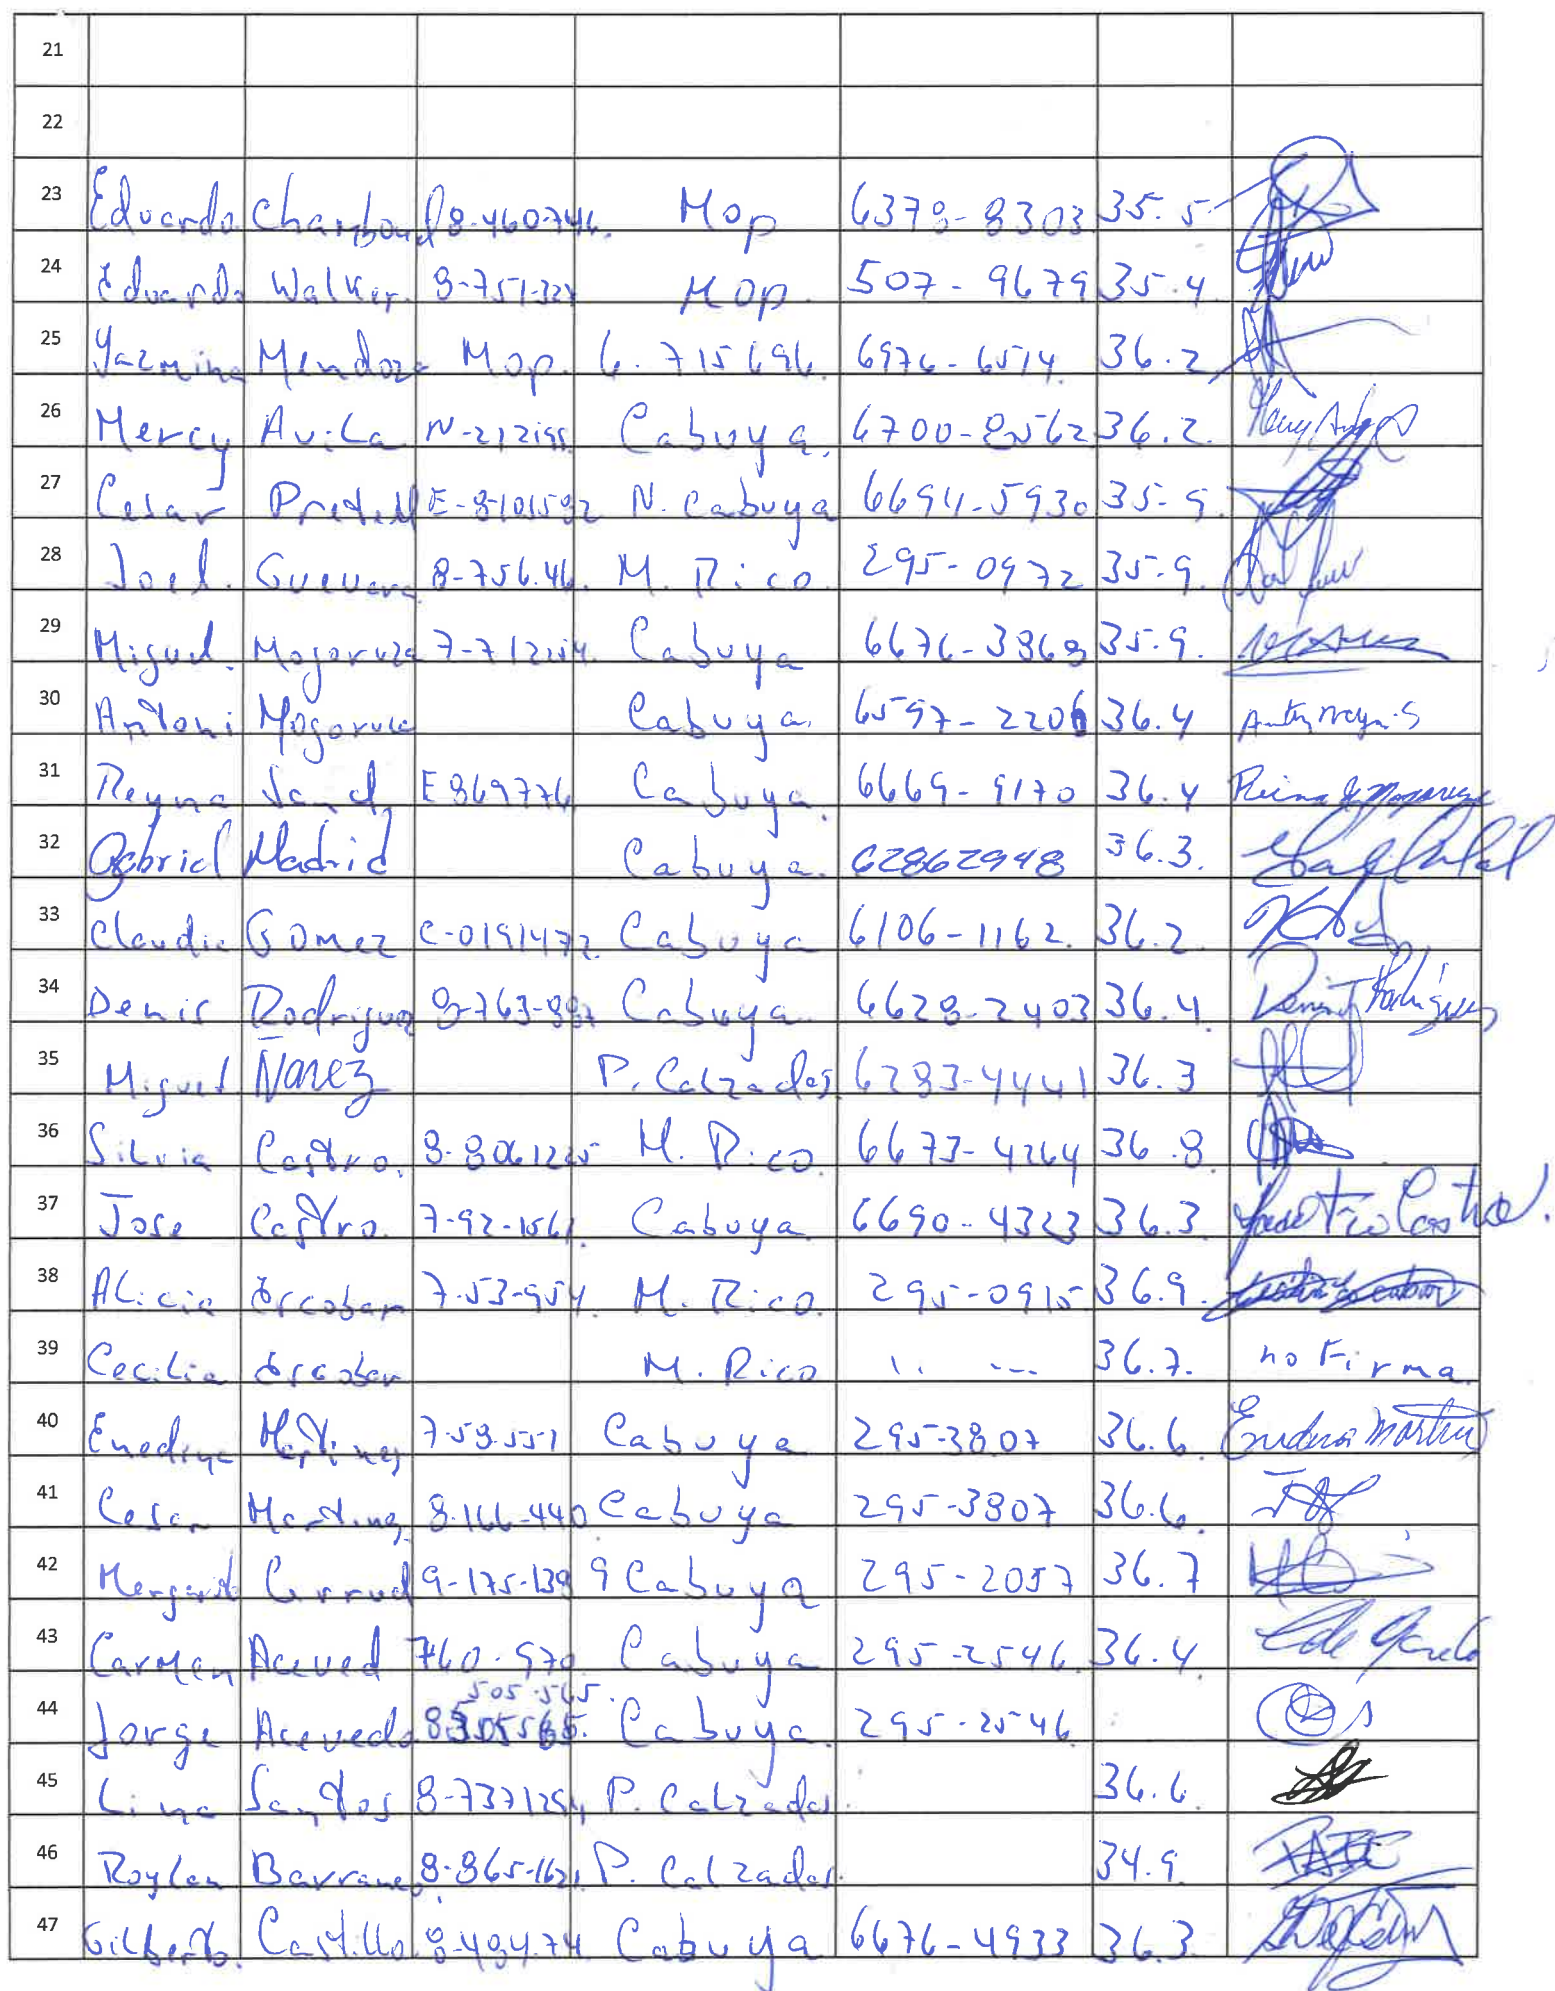 21
22
23 Eduardo Chambonel 8-460-746. Mop 6378-8303 35.5
24 Eduardo Walker. 8-751-327 Mop. 507-9679 35.4
25 Yazmina Mendoza Mop. 6.715696. 6976-6514. 36.2
26 Mercy Avila N-212199 Cabuya. 6700-8562 36.2. Mercy
27 Cesar E-8101592 N. Cabuya 6694-5930 35-9.
28 Joel. Guevara 8-756.46. M. Rico. 295-0972 35.9.
29 Miguel. Mogoruza Cabuya 6676-3869 35.9.
30 Antoni Mogoruza Cabuya. 6597-2206 36.4
31 Reyna Sand E869776 Cabuya. 6669-9170 36.4 Reina de Mogoruza
32 Gabriel Madrid Cabuya. 62862948 36.3.
33 Claudia Gomez C-0191472. Cabuya 6106-1162. 36.2.
34 Denis Rodriguez 8-763-897 Cabuya. 6628-2403 36.4. Denis Rodríguez
35 Miguel Ñanez P. Calzadas 6283-4441 36.3
36 Silvia Castro. 8-8061265 M. Rico. 6673-4264 36.8.
37 Jose Castro. 7-92-1561 Cabuya. 6690-4323 36.3. Castro.
38 Alicia Escobar 7.53-954. M. Rico. 295-0915 36.9.
39 Cecilia Escobar M. Rico ,, --- 36.7. no Firma.
40 Enedina Martinez 7-58.551 Cabuya 295-3807 36.6.
41 Cesar Martinez 8.166-440 Cabuya 295-3807 36.6.
42 Margarita Cerrud 9-175-139 9 Cabuya 295-2057 36.7
43 Carmen Aceved 760-970 Cabuya 295-2546. 36.4.
505-565.
44 Jorge Acevedo Cabuya. 295-2546
45 Lina Santos 8-7371254 P. Calzadas. 36.6.
46 Roylan 8-865-1621 P. Calzadas. 34.9.
47 Gilberto. Castillo. 8-484.74 Cabuya 6676-4933 36.3.